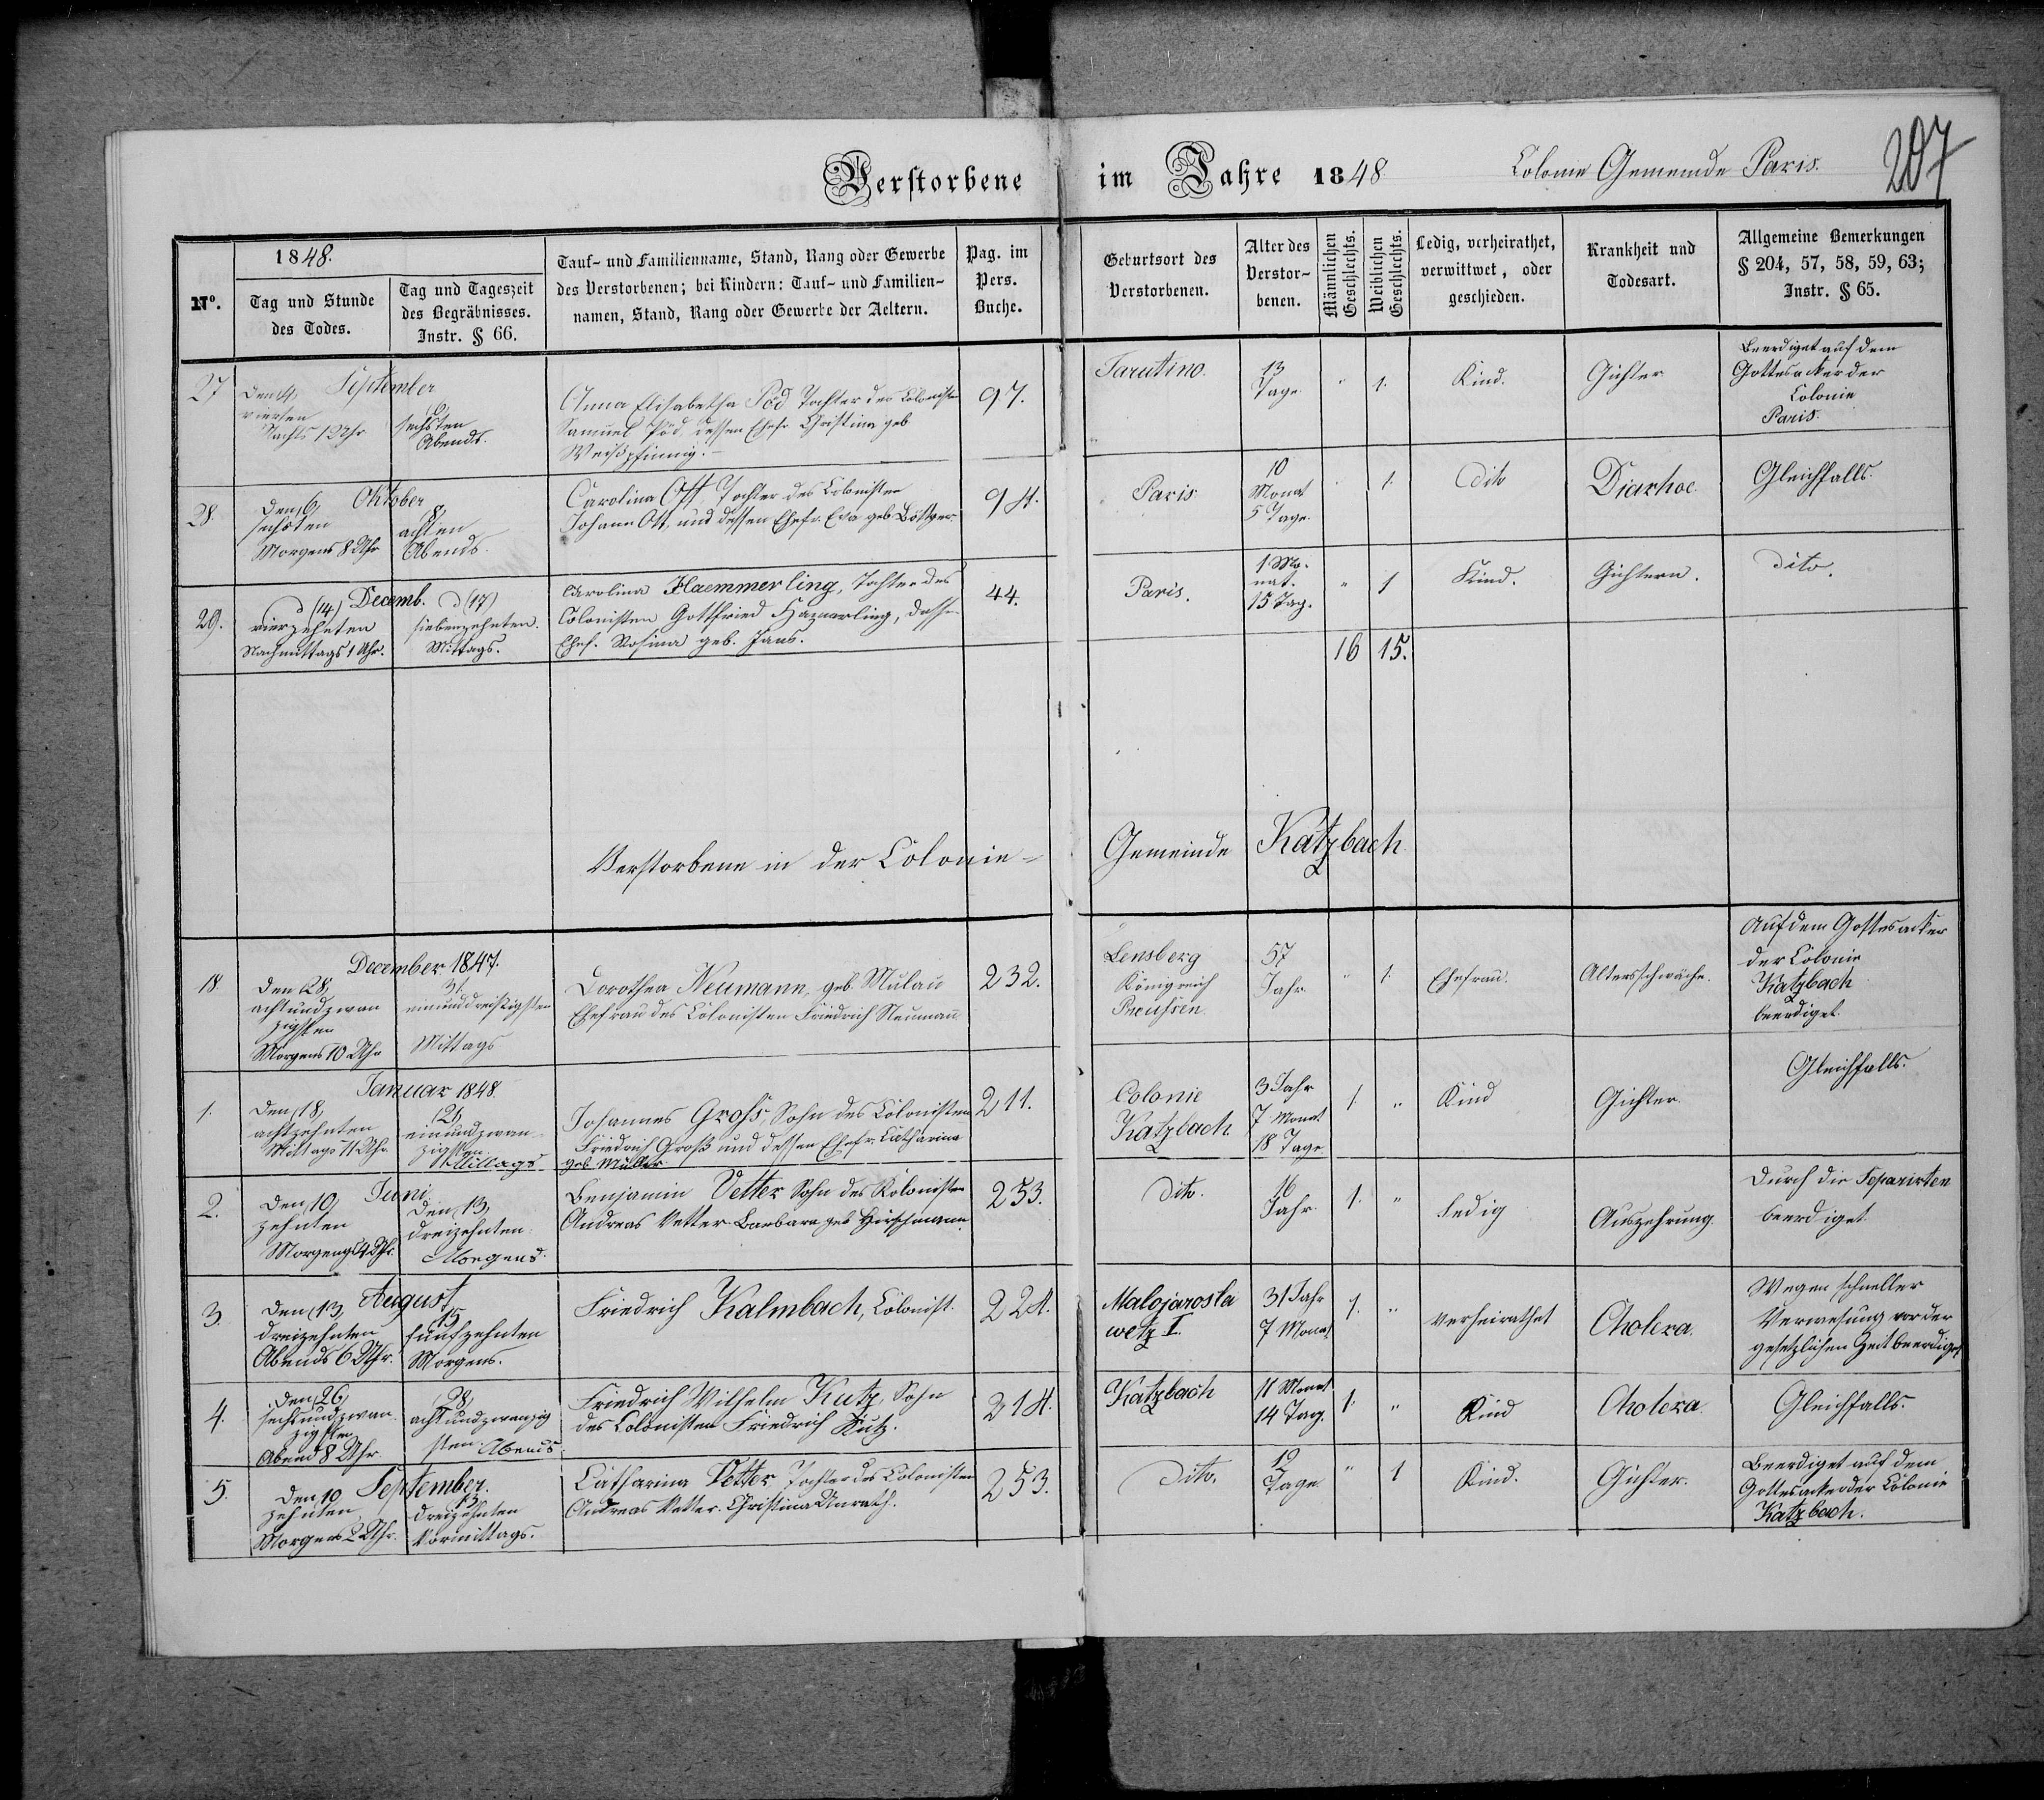 Verstorbene im Jahre 1848 Colonie Gemeinde Paris. 207
No.
1848.
Tag und Stunde
des Todes.
Tag und Tageszeit
des Begräbnisses.
Instr. § 66.
Tauf- und Familienname, Stand, Rang oder Gewerbe
des Verstorbenen; bei Kindern: Tauf- und Familien-
namen, Stand, Rang oder Gewerbe der Aeltern.
Pag. im
Pers.
Buche.
Geburtsort des
Verstorbenen.
Alter des
Verstor-
benen.
Männlichen
Geschlechts.
Weiblichen
Geschlechts.
Ledig, verheirathet,
verwittwet, oder
geschieden.
Krankheit und
Todesart.
Allgemeine Bemerkungen
§ 204, 57, 58, 59, 63;
Instr. § 65.
27
September
Den 4,
vierten
Nachts 12 Uhr
6,
sechsten
Abends.
Anna Elisabetha Föd Tochter des Colonisten
Samuel Föd, dessen Ehefr Christina geb
Weißpfennig.
97.
Tarutino.
13
Tage
" 1.
Kind.
Gichter
Beerdiget auf dem
Gottesacker der
Colonie
Paris.
28.
Oktober
Den 6,
sechsten
Morgens 8 Uhr
8,
achten
Abends.
Carolina Ott, Tochter des Colonisten
Johann Ott, und dessen Ehefr. Eva geb.
94.
Paris
10
Monat
5 Tage.
" 1.
Dito
Diarhoe.
Gleichfalls.
29.
Decemb.
d (14)
vierzehnten
Nachmittags 1 Uhr.
d (17)
siebenzehnten.
Mittags.
Carolina Haemmerling, Tochter des
Colonisten Gottfried Haemerling, dessen
Ehef. Rosina geb. Jans.
44.
Paris.
1 Mo-
nat.
15 Tag.
" 1
Kind.
Gichtern.
dito.
16 15.
Verstorbene in der Colonie- Gemeinde Katzbach
18.
December 1847.
Den 28,
achtundzwan
zigsten
Morgens 10 Uhr
31.
einunddreißigsten
Mittags
Dorothea Neumann, geb. Mulau
Ehefrau des Colonisten Friedrich Neumann
232.
Lensberg
Königreich
Preussen.
57
Jahr.
" 1.
Ehefrau.
Altersschwäche.
Auf dem Gottesacker
der Colonie
Katzbach
beerdiget.
1.
Januar 1848.
Den 18,
achtzehnten
Mittags 11 Uhr.
(21)
einundzwan-
zigsten.
Mittags
Johannes Groß, Sohn des Colonisten
Friedrich Groß und dessen Ehefr. Catharina
geb. Müller
211.
Colonie
Katzbach.
3 Jahr
7 Monat
18 Tage
1. "
Kind
Gichter.
Gleichfalls.
2.
Juni
Den 10,
zehnten
Morgengs 4 Uhr.
Den 13,
dreizehnten
Morgens.
Benjamin Vetter Sohn des Kolonisten
Andreas Vetter. Barbara geb Hirschmann.
253.
Dito.
16
Jahr.
1. "
Ledig
Auszehrung.
Durch die Separirten
beerdiget.
3.
August
Den 13,
dreizehnten
Abends 6 Uhr.
15.
fünfzehnten
Morgens.
Friedrich Kalmbach, Colonist.
224.
Malojarosla
wetz I.
31 Jahr
7 Monat
1. "
verheirathet
Cholera.
Wegen schneller
Verwesung vor der
gesetzlichen Zeit beerdiget
4.
Den 26,
sechsundzwan
zigsten
Abend 8 Uhr.
28,
achtundzwanzig
sten. Abends
Friedrich Wilhelm Kutz, Sohn
des Colonisten Friedrich Kutz.
214.
Katzbach
11 Monat
14 Tag.
1. "
Kind
Cholera.
Gleichfalls.
5.
September.
Den 10,
zehnten
Morgens 2 Uhr.
13.
dreizehnten
Vormittags.
Catharina Vetter, Tochter des Colonisten
Andreas Vetter. Christina Unrath.
253.
Dito,
12
Tage.
" 1
Kind.
Gichter.
Beerdiget auf dem
Gottesacker der Colonie
Katzbach.